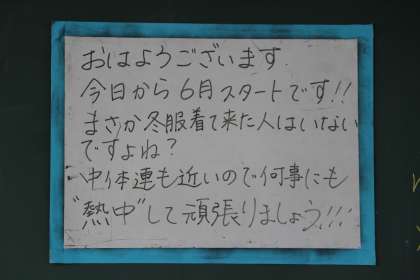 おはようございます.
今日から6月スタートです!!
まさか冬服着て来た人はいない
ですよね?
中体連も近いので何事にも
"熱中"して頑張りましょう!!!